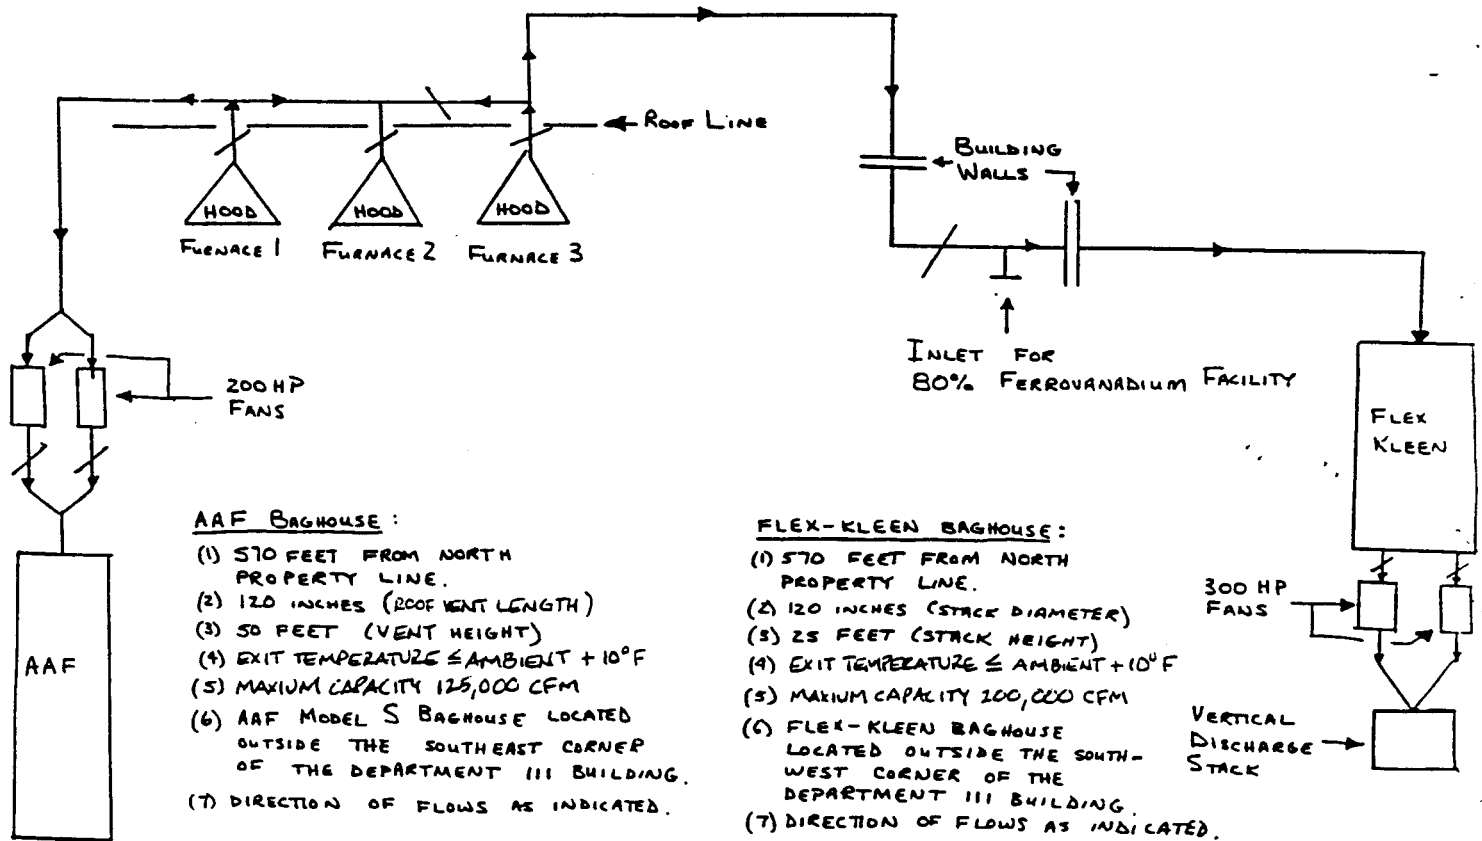 ROOF LINE
BUILDING
WALLS
HOOD
HOOD
HOOD
FURNACE 1
FURNACE 2
FURNACE 3
INLET FOR
80% FERROVANADIUM FACILITY
200 HP
FANS
FLEX
KLEEN
AAF BAGHOUSE:
(1) 570 FEET FROM NORTH
PROPERTY LINE.
(2) 120 INCHES (ROOF VENT LENGTH)
(3) 50 FEET (VENT HEIGHT)
(4) EXIT TEMPERATURE ≤ AMBIENT + 10°F
(5) MAXIUM CAPACITY 125,000 CFM
(6) AAF MODEL S BAGHOUSE LOCATED
OUTSIDE THE SOUTHEAST CORNER
OF THE DEPARTMENT III BUILDING.
(7) DIRECTION OF FLOWS AS INDICATED.
AAF
FLEX-KLEEN BAGHOUSE:
(1) 570 FEET FROM NORTH
PROPERTY LINE.
(2) 120 INCHES (STACK DIAMETER)
(3) 25 FEET (STACK HEIGHT)
(4) EXIT TEMPERATURE ≤ AMBIENT + 10°F
(5) MAXIUM CAPACITY 200,000 CFM
(6) FLEX-KLEEN BAGHOUSE
LOCATED OUTSIDE THE SOUTH-
WEST CORNER OF THE
DEPARTMENT III BUILDING.
(7) DIRECTION OF FLOWS AS INDICATED.
300 HP
FANS
VERTICAL
DISCHARGE
STACK